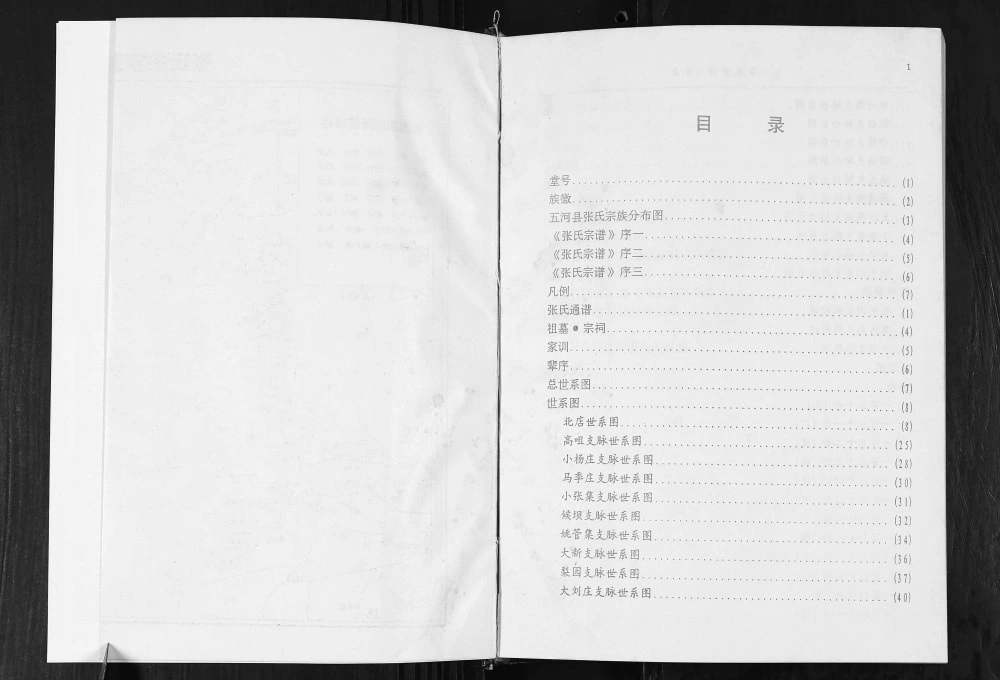 1
目 录
堂号 (1)
族徽 (2)
五河县张氏宗族分布图 (3)
《张氏宗谱》序一 (4)
《张氏宗谱》序二 (5)
《张氏宗谱》序三 (6)
凡例 (7)
张氏通谱 (1)
祖墓●宗祠 (4)
家训 (5)
辈序 (6)
总世系图 (7)
世系图 (8)
北店世系图 (8)
高咀支脉世系图 (25)
小杨庄支脉世系图 (28)
马李庄支脉世系图 (30)
小张集支脉世系图 (31)
候坝支脉世系图 (32)
姚管集支脉世系图 (34)
大新支脉世系图 (36)
梨园支脉世系图 (37)
大刘庄支脉世系图 (40)